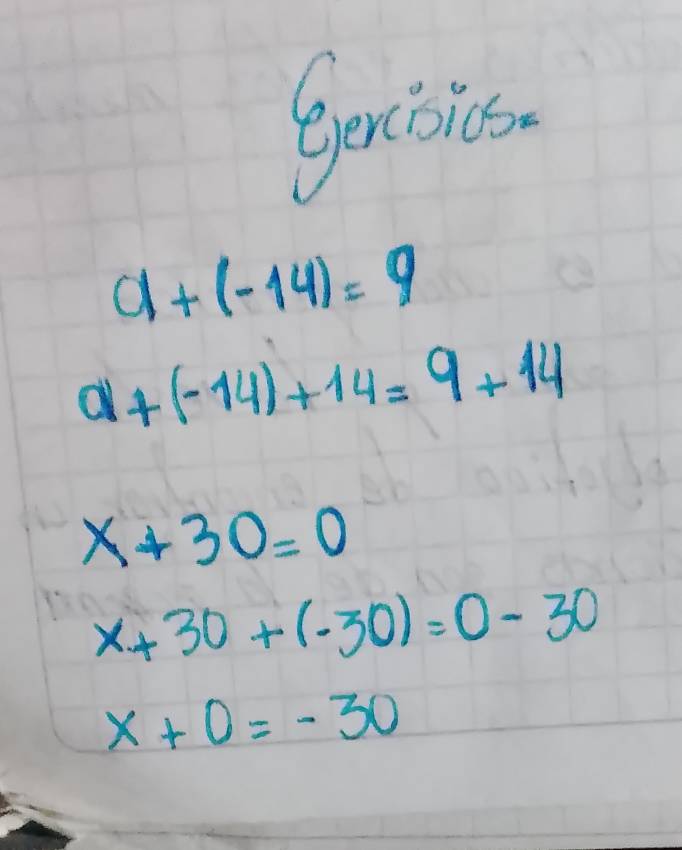 Ejercisios=
a+(-14)=9
a+(-14)+14=9+14
x+30=0
x+30+(-30)=0-30
x+0=-30